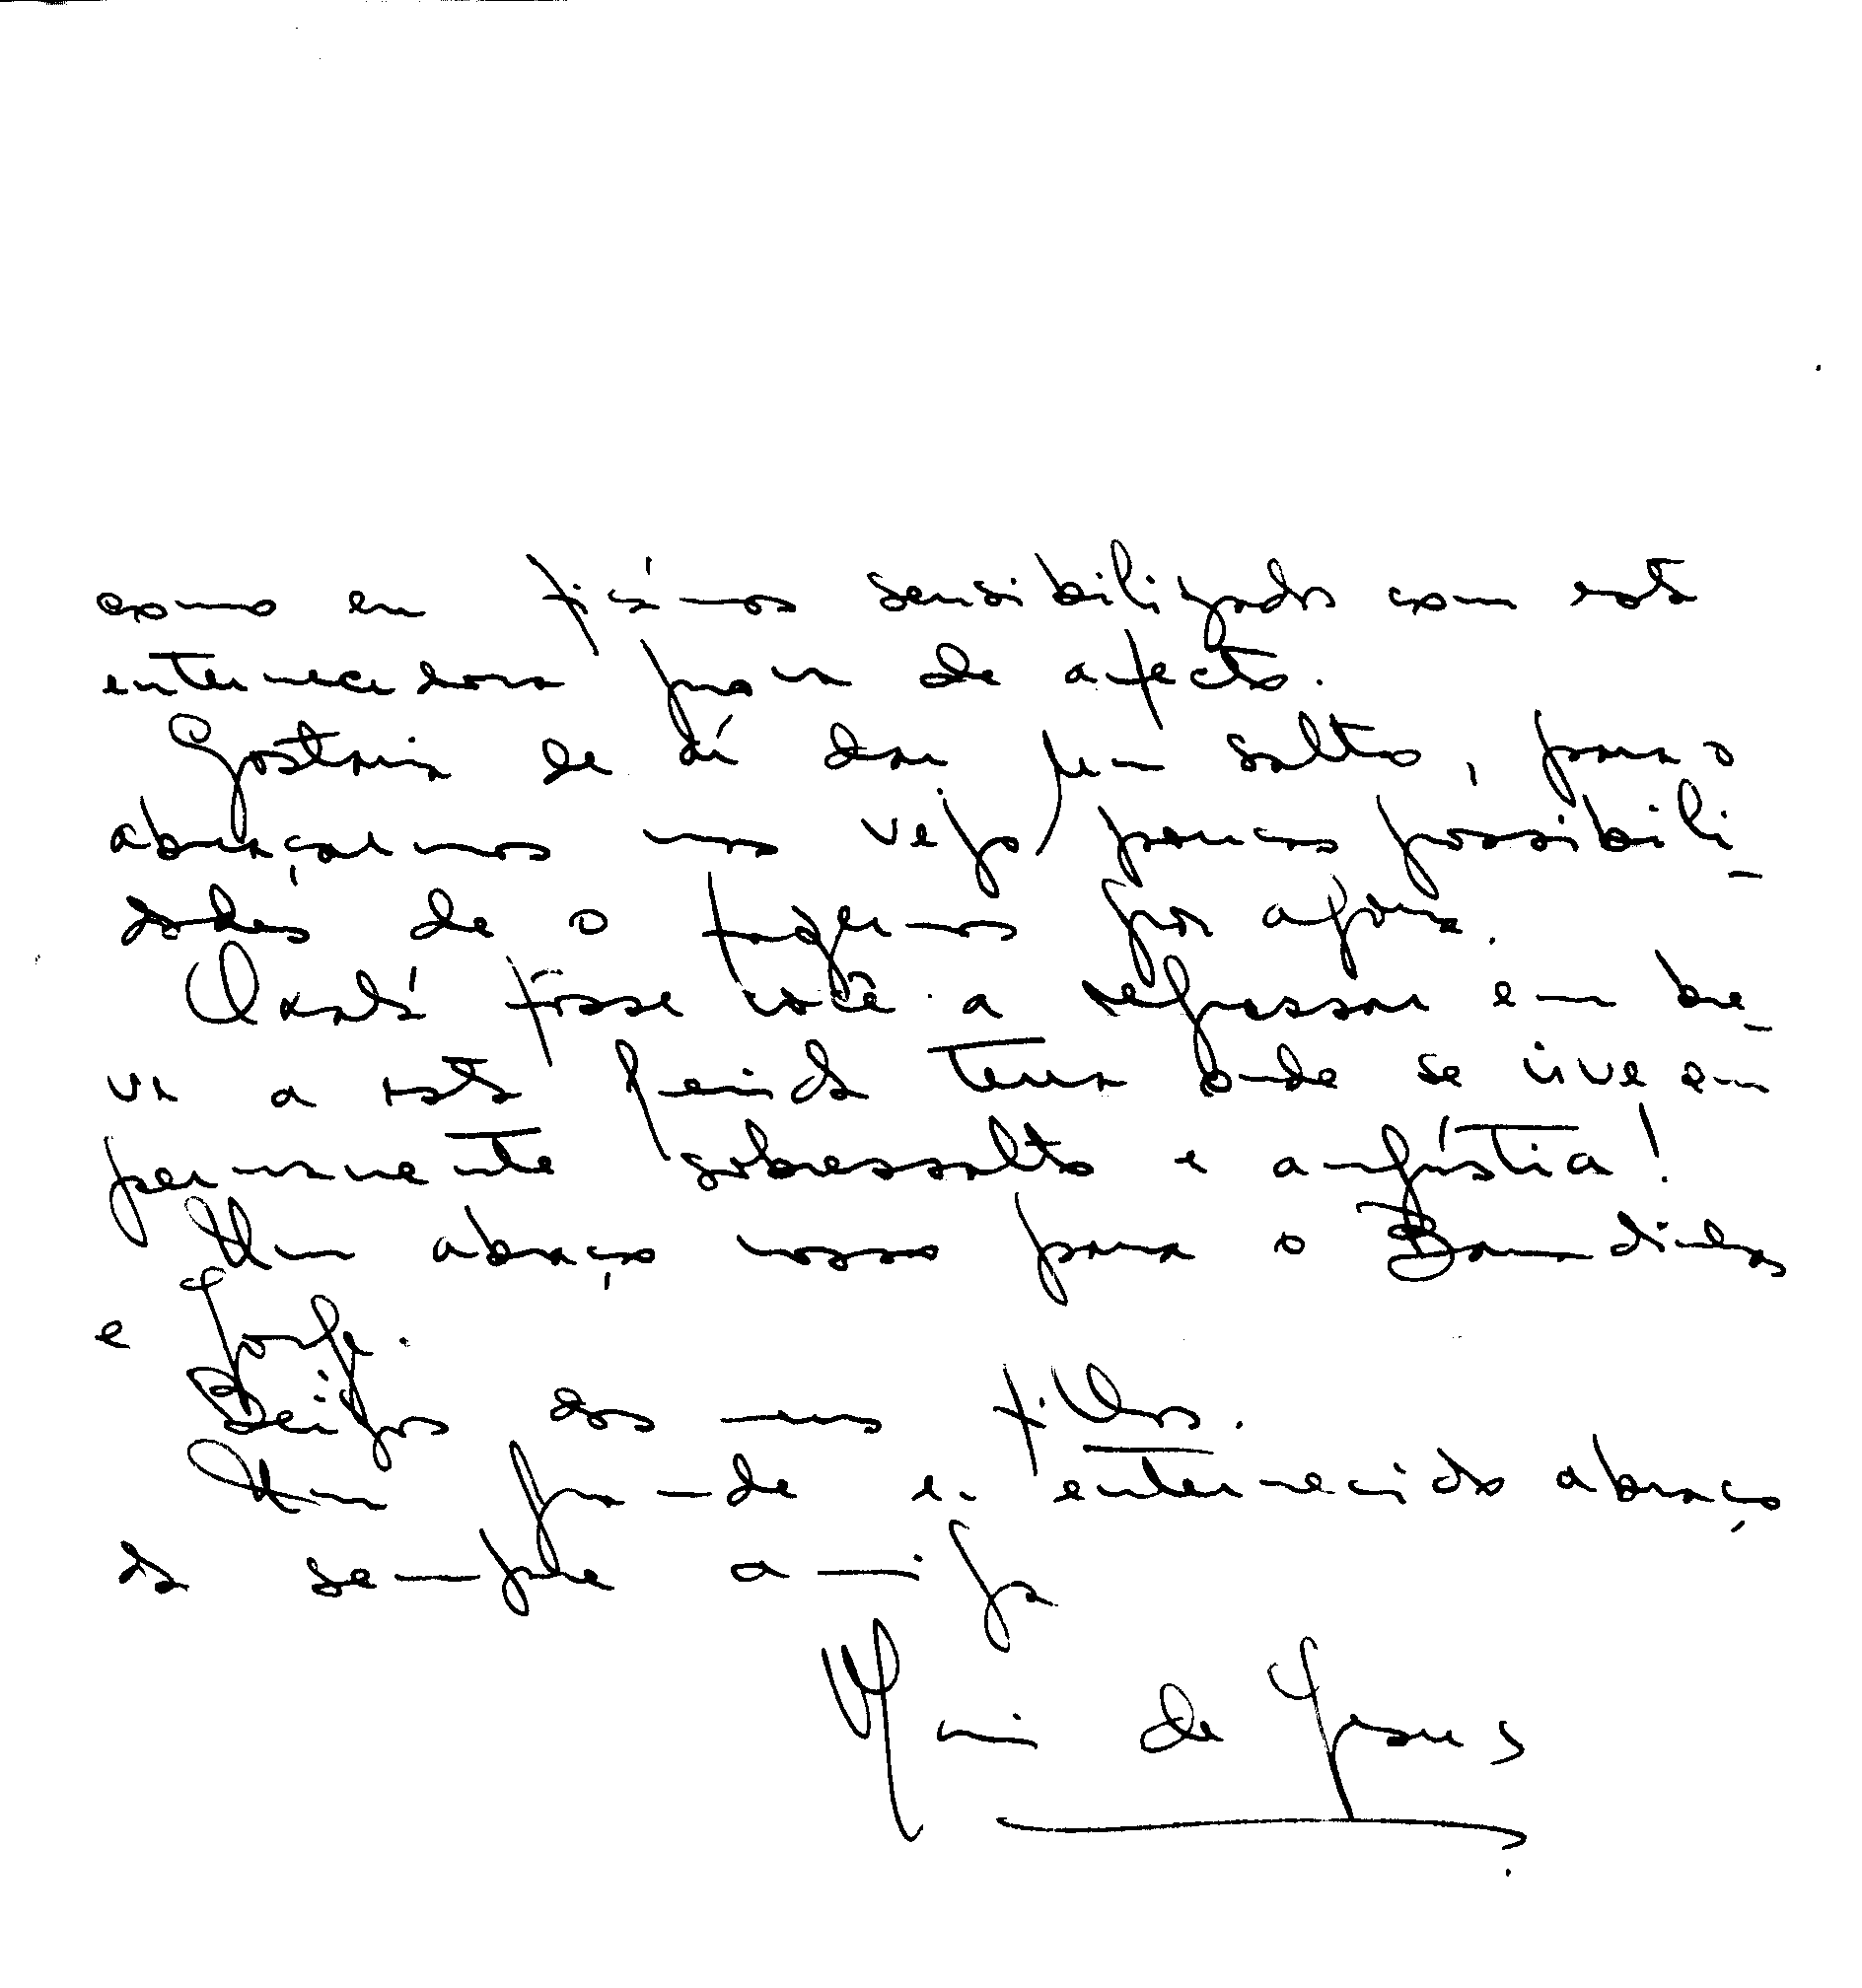 como eu ficámos sensibilizados com esta
enternecedora prova de afecto.
Gostaria de lá dar um salto, para o
abraçarmos mas vejo poucas possibili-
dades de o fazermos por agora.
Oxalá fosse você a regressar em bre-
ve a esta querida terra onde se vive em
permanente sobressalto e angústia!
Um abraço nosso para o
e Jorge.
Beijos dos meus filhos.
Um grande e enternecido abraço
da sempre amiga
Maria de Jesus